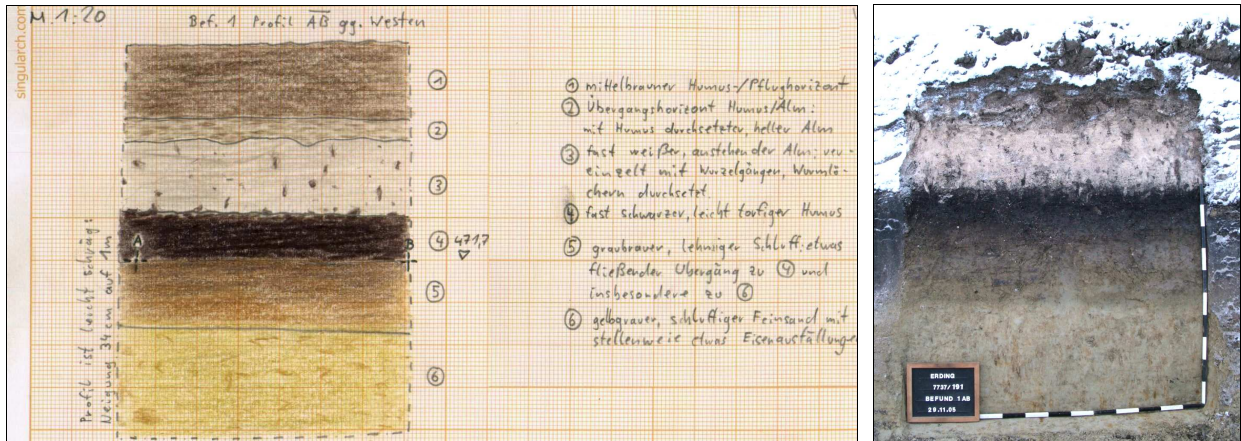 M. 1:20
Bef. 1 Profil AB gg. Westen
singularch.com
1
2
3
4
5
6
A
B
471,7
Profil ist leicht schräg:
Neigung 34 cm auf 1m
① mittelbrauner Humus-/Pflughorizont
② Übergangshorizont Humus/Alm:
mit Humus durchsetzter, heller Alm
③ fast weißer, anstehender Alm; ver-
einzelt mit Wurzelgängen, Wurmlö-
chern durchsetzt.
④ fast schwarzer, leicht torfiger Humus
⑤ graubrauner, lehmiger Schluff; etwas
fließender Übergang zu ④ und
insbesondere zu ⑥
⑥ gelbgrauer, schluffiger Feinsand mit
stellenweise etwas Eisenausfällunge
ERDING
7737/191
BEFUND 1 AB
29.11.05